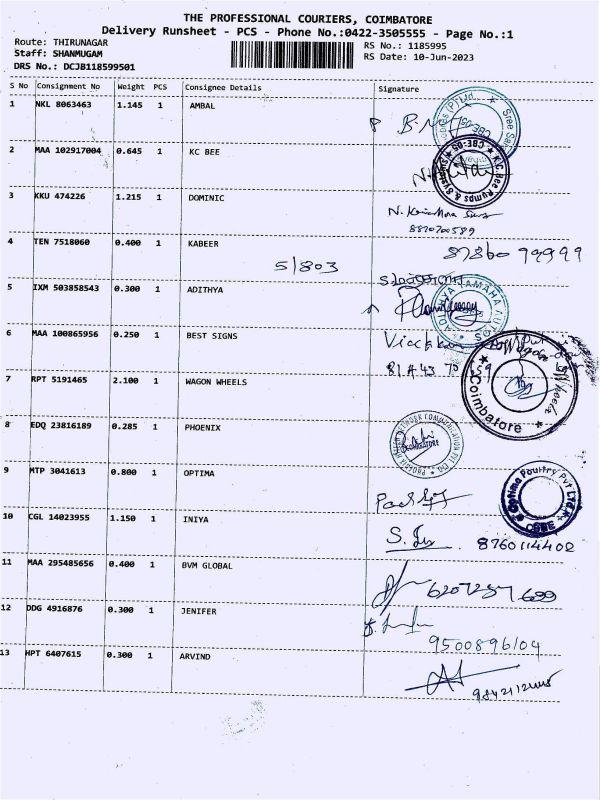 THE PROFESSIONAL COURIERS, COIMBATORE
Delivery Runsheet - PCS - Phone No.:0422-3505555 - Page No.:1
Route: THIRUNAGAR
RS No.: 1185995
Staff: SHANMUGAM
RS Date: 10-Jun-2023
DRS No.: DCJB118599501
S No Consignment No Weight PCS Consignee Details Signature
1 NKL 8063463 1.145 1 AMBAL
2 MAA 102917004 0.645 1 KC BEE
K.C.Bee Pumps & Systems CBE-05
3 KKU 474226 1.215 1 DOMINIC
8870700589
4 TEN 7518060 0.400 1 KABEER
87860 99999
51803
5 IXM 503858543 0.300 1 ADITHYA
ADITHYA YAMAHA AUTOS
6 MAA 100865956 0.250 1 BEST SIGNS
81 A 43 70 59
7 RPT 5191465 2.100 1 WAGON WHEELS
Coimbatore
8 EDQ 23816189 0.285 1 PHOENIX
COIMBATORE
9 MTP 3041613 0.800 1 OPTIMA
Optima Poultry Pvt Ltd. CBE
10 CGL 14023955 1.150 1 INIYA
8760114402
11 MAA 295485656 0.400 1 BVM GLOBAL
6207287699
12 DDG 4916876 0.300 1 JENIFER
9500896104
13 HPT 6407615 0.300 1 ARVIND